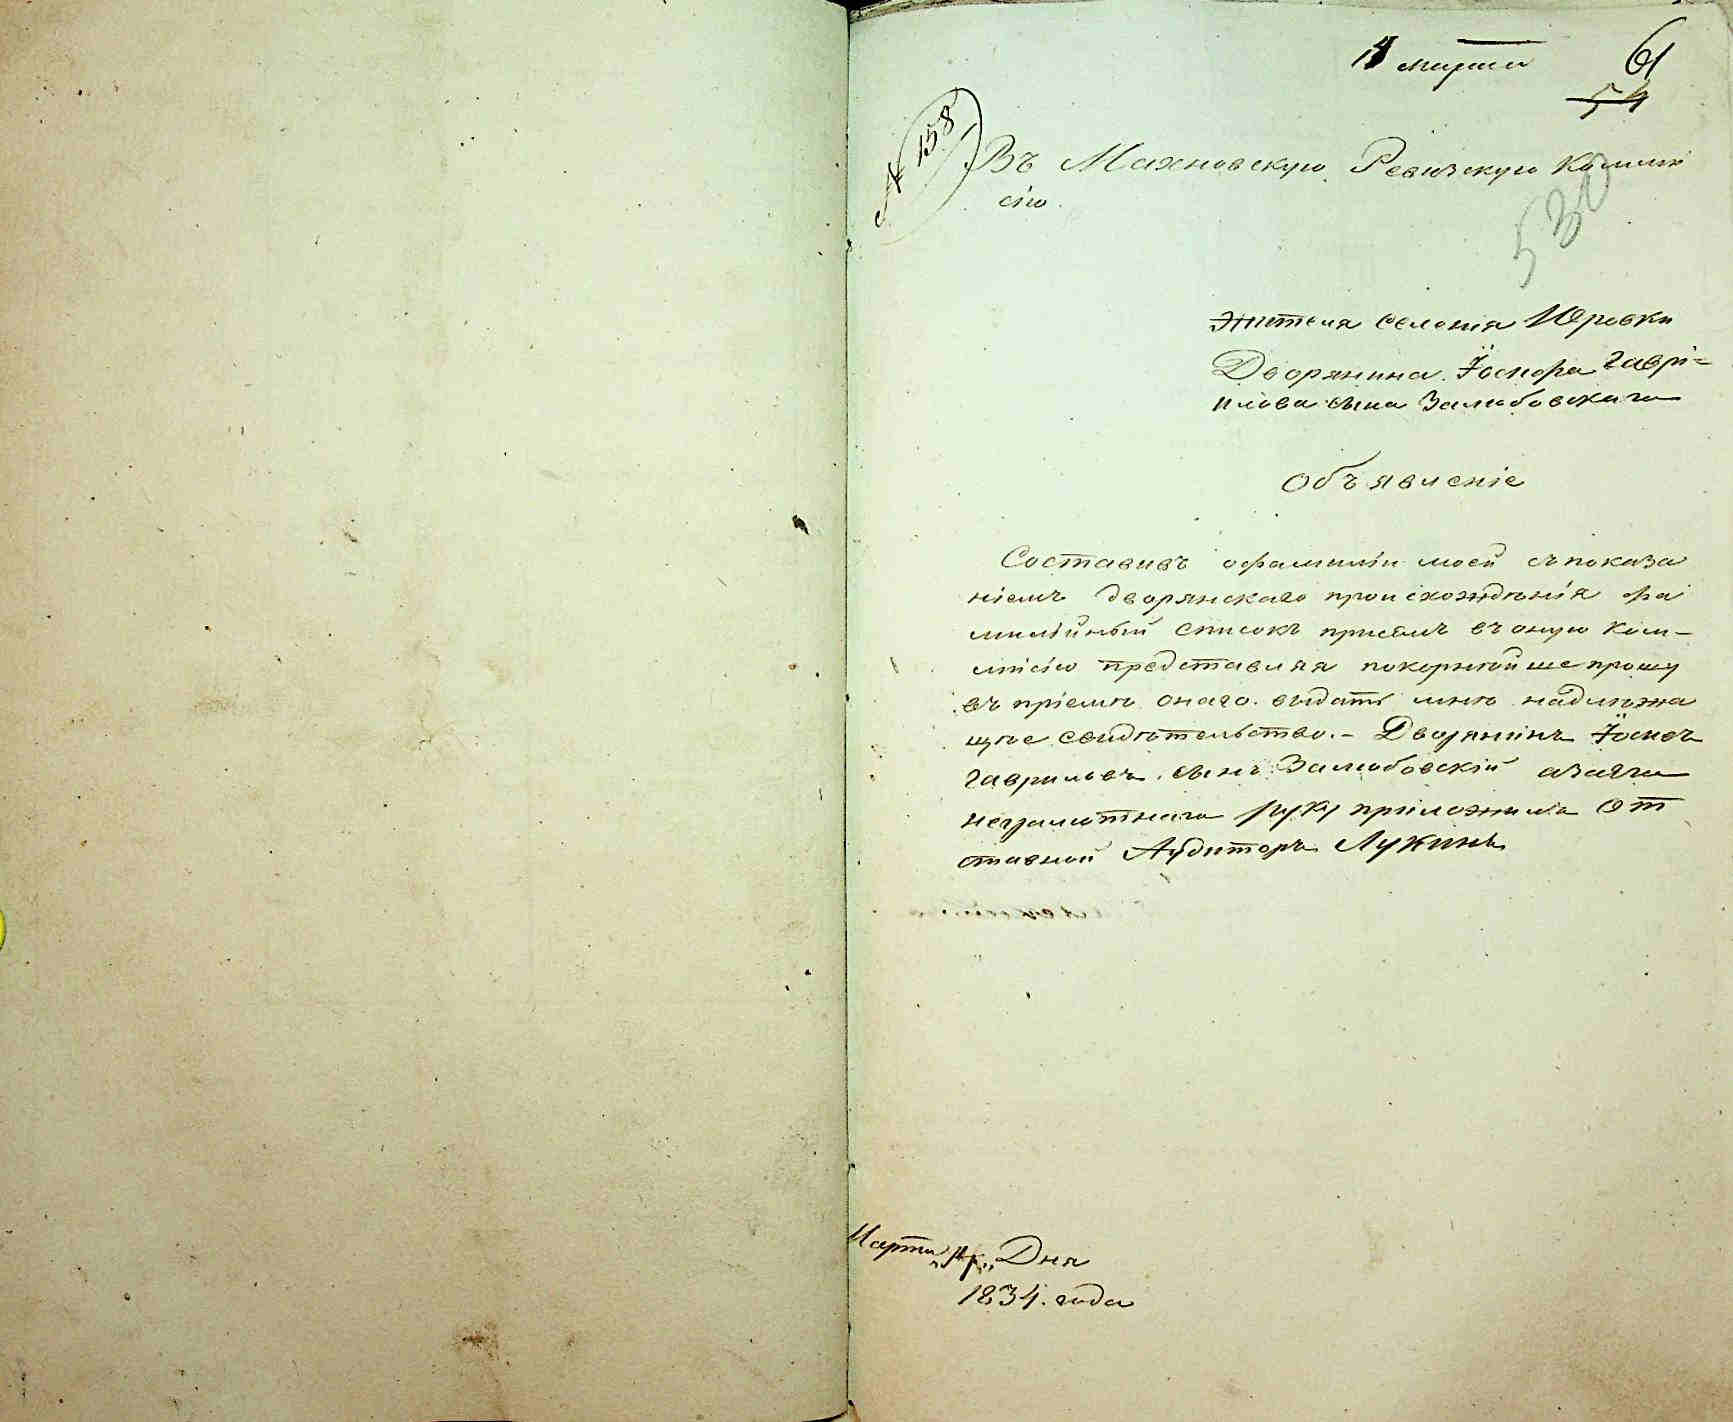 14 марта
61
54
№ 158
Въ Махновскую Ревизскую Комми
сію
530
Жителя селенія Юровки
Дворянина Іосифа Гаврі=
илова сына Залюбовскаго
Объявленіе
Составивъ офамиліи моей съ показа
ніемъ дворянскаго происхожденія фа
милійный списокъ присемъ въ оную Ком-
мисію представляя покорнѣйше прошу
въ пріемѣ онаго выдать мнѣ надлежа
щѣе свидѣтельство.- Дворянинъ Іосифъ
Гавриловъ сынъ Залюбовскій азаяго
неграмотнаго руку приложилъ От
ставной Аудиторъ Лукинъ
Марта Дня
1834. года